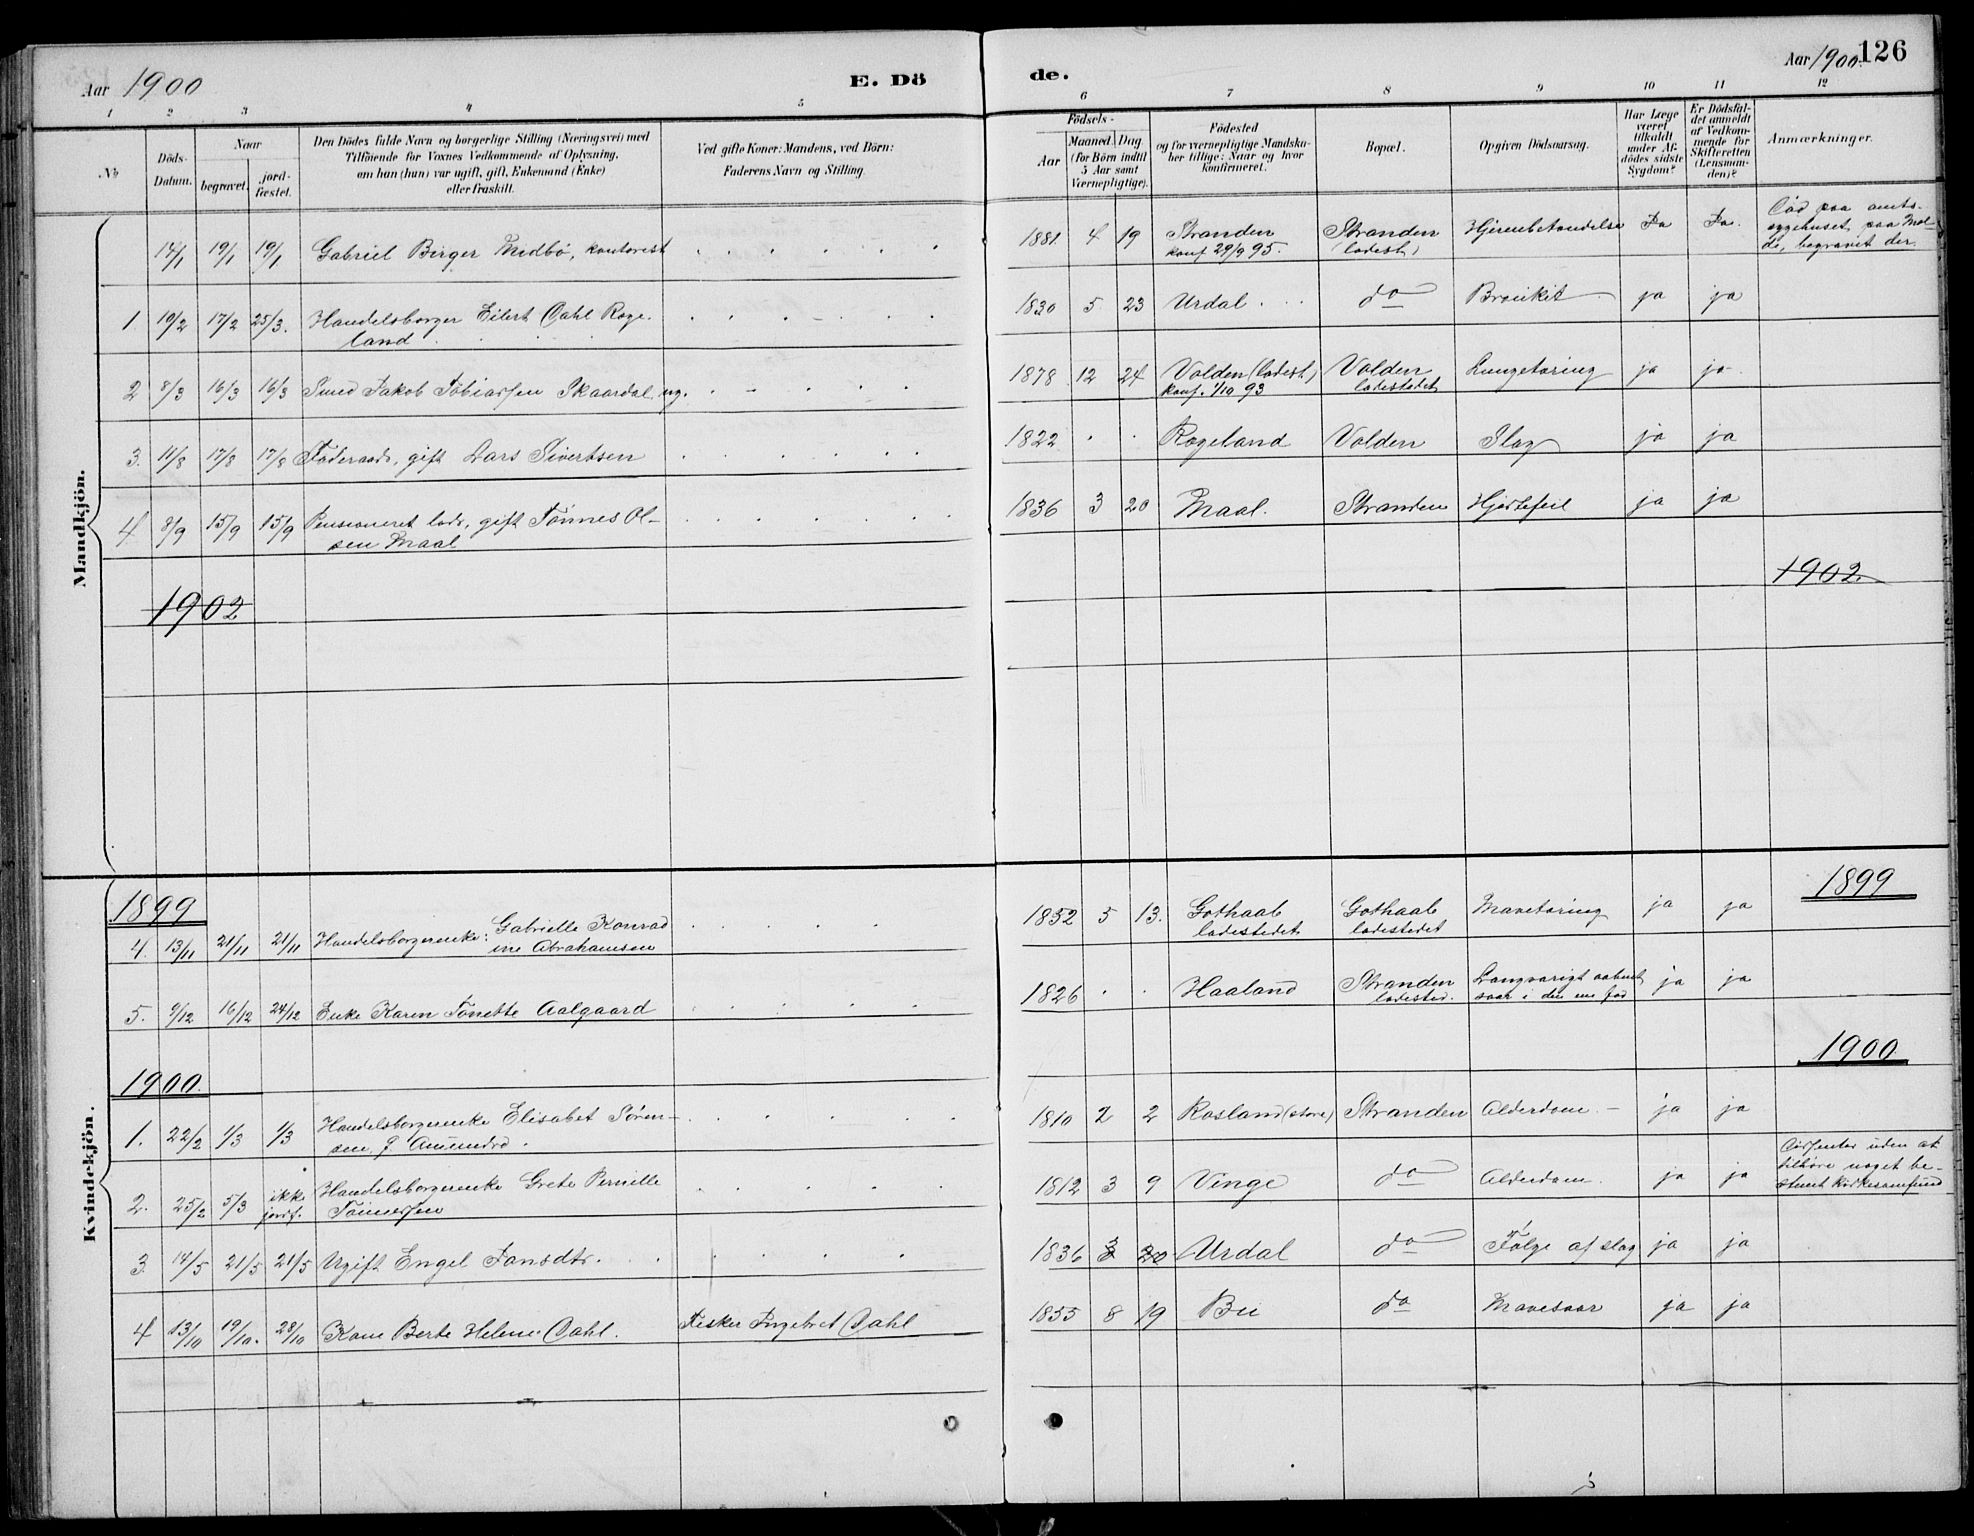 Aar 1900
E. Dö
de.
Aar 1900. 126
1 2 3 4 5 6 7 8 9 10 11 12
No
Döds-Datum.
Naar
begravet.
jord-fæstet.
Den Dödes fulde Navn og borgerlige Stilling (Næringsvei) med
Tilföiende for Voxnes Vedkommende af Oplysning,
om han (hun) var ugift, gift, Enkemand (Enke)
eller fraskilt.
Ved gifte Koner: Mandens, ved Børn:
Faderens Navn og Stilling.
Födsels-
Aar
Maaned. Dag
(for Börn indtil
5 Aar samt
Værnepligtige).
Födested
og for værnepligtige Mandska-
ber tillige: Naar og hvor
konfirmeret.
Bopæl.
Opgiven Dödsaarsag.
Har Læge
været
tilkaldt
under Af-
dödes sidste
Sygdom?
Er Dödsfal-
det anmeldt
af Vedkom-
mende for
Skifteretten
(Lensman-
den)?
Anmærkninger.
Mandkjön.
14/1 19/1 19/1 Gabriel Birger Midbö, kontorist 1881 4 19 Stranden konf 29/9 95. Stranden (ladest) Hjernebetændelse Ja Ja. Död paa amts-
sygehuset paa Mol-
de, begravet der.
1 10/2 17/2 25/3. Handelsborger Eilert Dahl Roge-
land 1830 5 23 Urdal do Bronkit ja ja
2 8/3 16/3 16/3 Smed Jakob Tobiassen Skaardal, ug. 1878 12 24 Valden (ladest) konf. 1/10 93 Valden ladestedet Lungetæring ja ja
3. 11/8 17/8 17/8 Föderaads, gift Lars Sivertsen 1822 Rogeland Valden Slag ja ja
4 8/9 15/9 15/9 Pensioneret lods, gift Tönnes Ol-
sen Maal 1836 3 20 Maal. Stranden Hjertefeil ja ja
1902 1902.
Kvindekjön.
1899 1899
4. 13/11 21/11 21/11 Handelsborgerenke: Gabrielle Konrad
ine Abrahamsen 1852 5 13. Gothaab ladestedet Gothaab ladestedet Mavetæring ja ja
5. 9/12 16/12 24/12 Enke Karen Tonette Aalgaard 1826 Haaland Stranden ladested. Langvarigt aabent
saar i den ene fod ja ja
1900. 1900
1. 22/2 1/3 1/3 Handelsborgerenke Elisabet Sören-
sen f. 1810 2 2 Rosland (store) Stranden Alderdom ja ja
2. 25/2 5/3 ikke jordf. Handelsborgerenke Grete Pernille
Tönnessen 1812 3 9 Vinge do Alderdom. ja ja Dissenter uden at
tilhöre noget be-
stemt kirkesamfund
3. 14/5 21/5 21/5 Ugift Engel Jansdtr. 1836 3 20 Urdal do Fölge af slag ja ja
4 13/10 19/10. 28/10 Kone Berte Helene Dahl. Fisker Ingebret Dahl 1855 8 19 Bu do Mavesaar ja ja